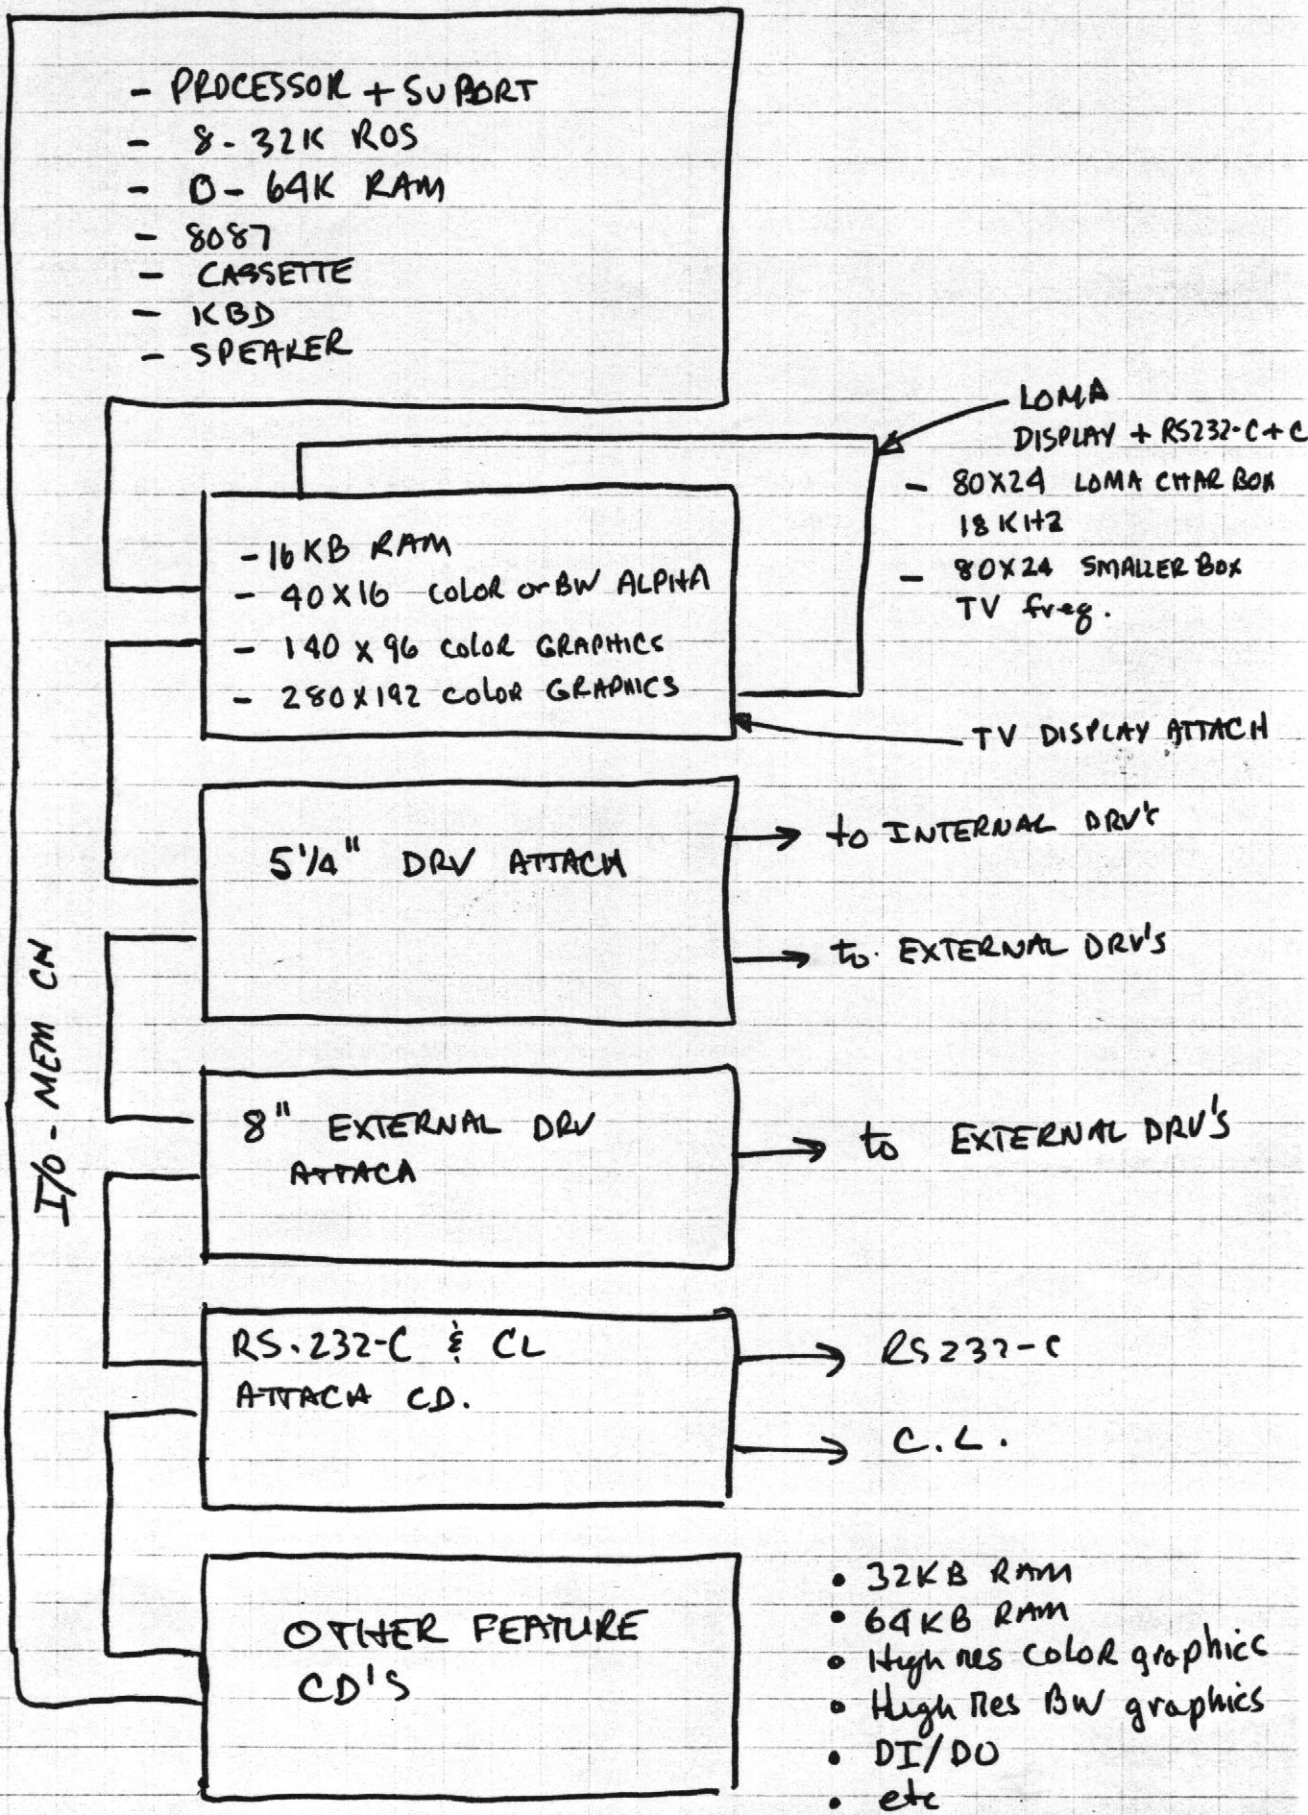 - PROCESSOR + SUPORT
- 8-32K ROS
- 0-64K RAM
- 8087
- CASSETTE
- KBD
- SPEAKER
LOMA
DISPLAY + RS232-C + C
- 80X24 LOMA CHAR BOX
18 KHZ
- 80X24 SMALLER BOX
TV freq.
- 16 KB RAM
- 40X16 COLOR or BW ALPHA
- 140 X 96 COLOR GRAPHICS
- 280X192 COLOR GRAPHICS
TV DISPLAY ATTACH
5 1/4" DRV ATTACH
to INTERNAL DRV's
to EXTERNAL DRV's
I/O - MEM CN
8" EXTERNAL DRV
ATTACH
to EXTERNAL DRV'S
RS.232-C & CL
ATTACH CD.
RS232-C
C.L.
OTHER FEATURE
CD'S
• 32KB RAM
• 64KB RAM
• High res COLOR graphics
• High Res BW graphics
• DI/DO
• etc